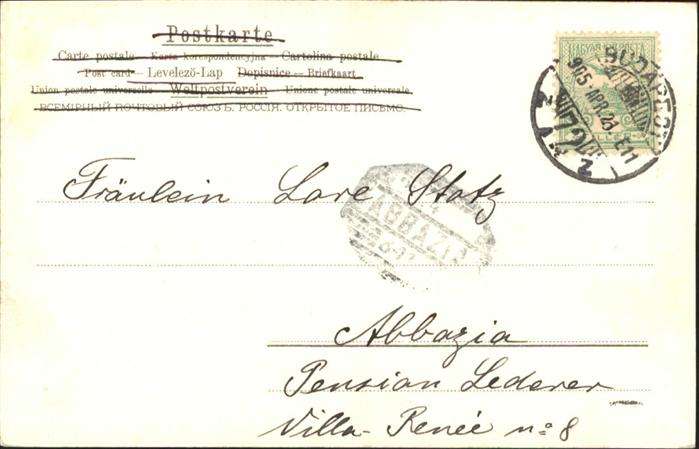 Postkarte
Carte postale — Karta korespondencyjna — Cartolina postale
Post card — Levelező-Lap Dopisnice — Briefkaart
Union postale universelle — Weltpostverein — Unione postale universale
ВСЕМІРНЫЙ ПОЧТОВЫЙ СОЮЗЪ. РОССІЯ. ОТКРЫТОЕ ПИСЬМО.
MAGYAR KIR. POSTA
BUDAPEST
905 APR. 23
72
Fräulein Lore Statz
ABBAZIA
Abbazia
Pension Lederer
Villa Renée no 8